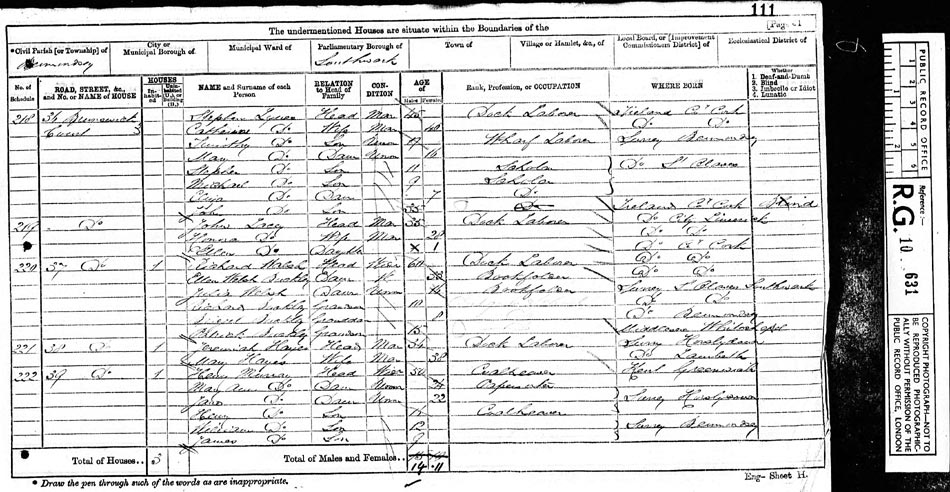 111
[Page 61
The undermentioned Houses are situate within the Boundaries of the
*Civil Parish [or Township] of
City or Municipal Borough of
Municipal Ward of
Parliamentary Borough of
Town of
Village or Hamlet, &c., of
Local Board, or [Improvement Commissioners District] of
Ecclesiastical District of
Bermondsey Southwark
No. of Schedule
ROAD, STREET, &c., and No. or NAME of HOUSE
HOUSES
Inhabited
Uninhabited (U.), or Building (B.)
NAME and Surname of each Person
RELATION to Head of Family
CONDITION
AGE of
Males Females
Rank, Profession, or OCCUPATION
WHERE BORN
Whether
1. Deaf-and-Dumb
2. Blind
3. Imbecile or Idiot
4. Lunatic
218 36 Brunswick Stephen Head Mar Dock Laborer Ireland Co Cork
Court Catherine Do Wife Mar 40 Do Do
Timothy Do Son Unm 19 Wharf Laborer Surrey Bermondsey
Mary Do Daur Unm 16
Stephen Do Son 11 Scholar Do St Olaves
Michael Do Son 9 Scholar
Eliza Do Daur 7 Do
John Do Son Ireland Co Cork Blind
219 Do John Lacey Head Mar 36 Dock Laborer Do City Limerick
Do Wife Mar 28 Do Do
Ellen Do Daugh 1 Do Co Cork
220 37 Do 1 Richard Walsh Head Wid 60 Dock Laborer Do Do
Ellen Welsh Buckley Daur Bookfolder Do Do
Julia Welsh Daur Unm Bookfolder Surrey St Olaves Southwark
Grandson 10 Do Do
8 Do Bermondsey
Grandson 15 Middlesex
221 38 Do 1 Jeremiah Hayes Head Mar 34 Dock Laborer Surrey Horslydown
Mary Hayes Wife Mar 38 Do Lambeth
222 39 Do 1 Henry Murray Head Wid 54 Coalheaver Kent Greenwich
Mary Ann Do Daur Unm 24
Jane Do Daur Unm 22 Surrey Horslydown
Henry Do Son Coalheaver
William Do Son 12 Surrey Bermondsey
James Do Son 9
Total of Houses.. 3
Total of Males and Females..
14 11
* Draw the pen through such of the words as are inappropriate.
Eng— Sheet H.
PUBLIC RECORD OFFICE
Reference:—
R.G. 10 631
COPYRIGHT PHOTOGRAPH—NOT TO BE REPRODUCED PHOTOGRAPHICALLY WITHOUT PERMISSION OF THE PUBLIC RECORD OFFICE, LONDON